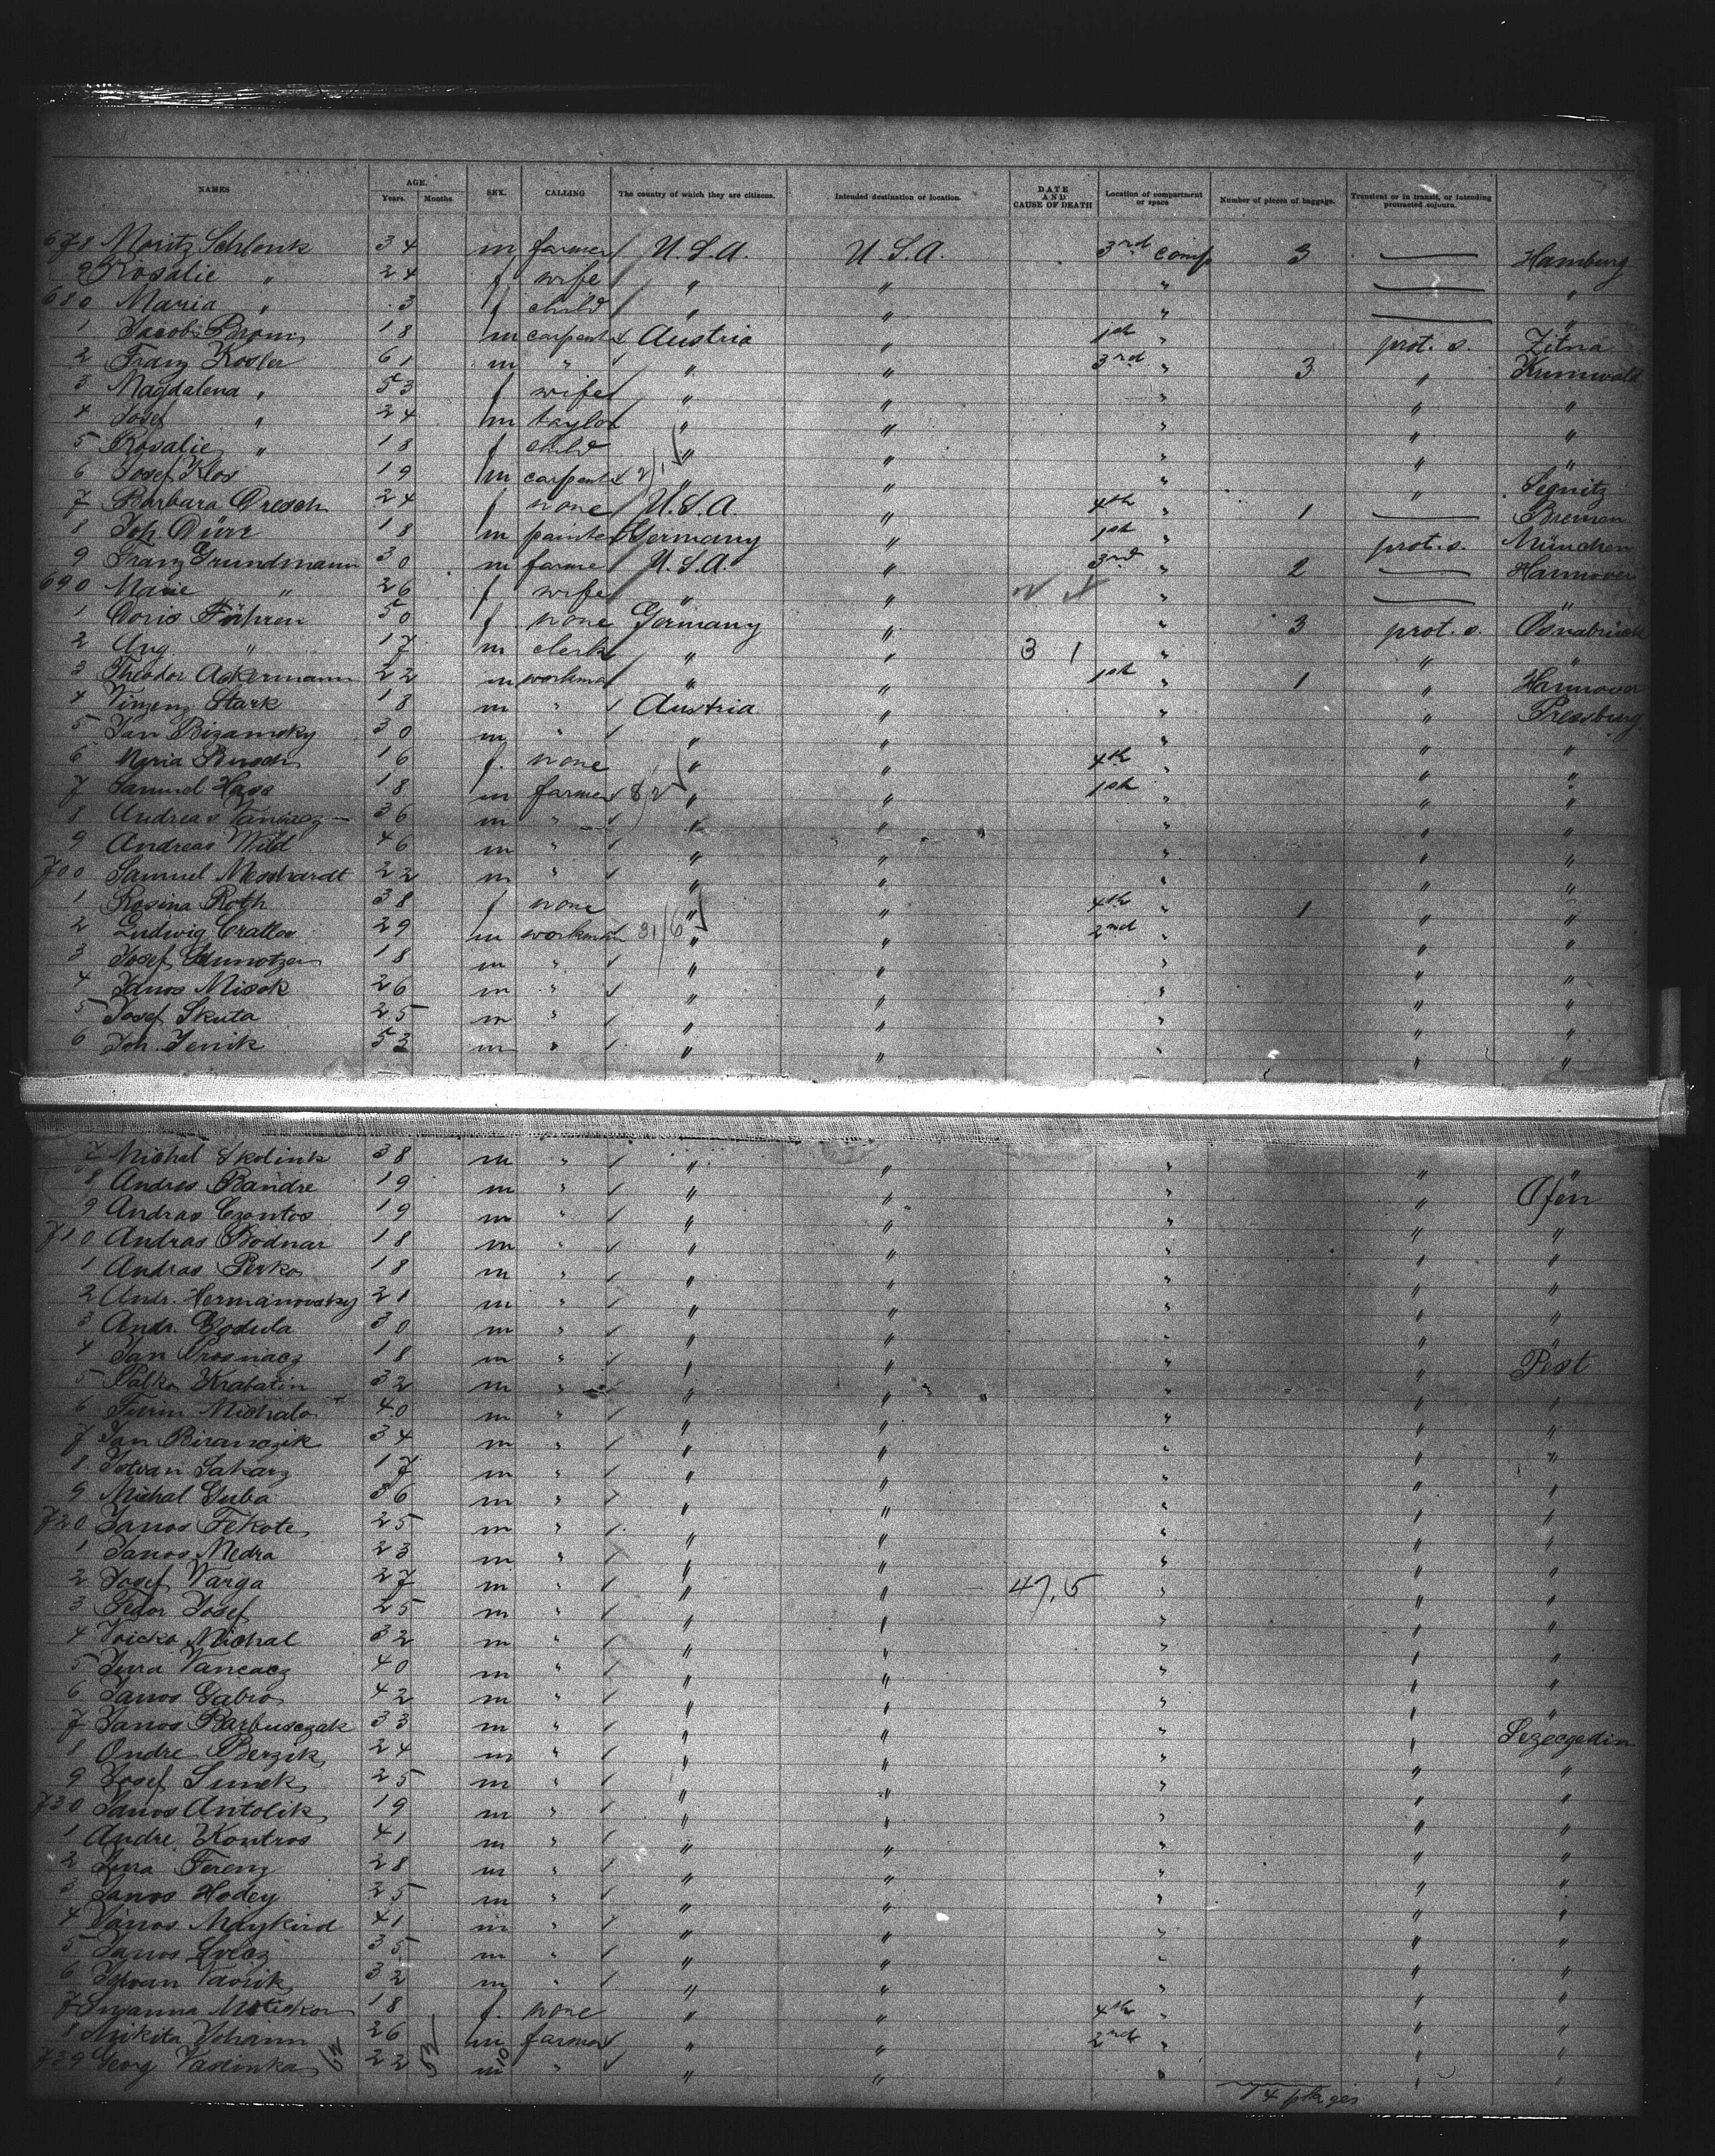 NAMES AGE. Years. Months. SEX. CALLING The country of which they are citizens. Intended destination or location. DATE AND CAUSE OF DEATH Location of compartment or space Number of pieces of baggage. Transient or in transit, or intending protracted sojourn.
678 Moritz Schlenk 34 m farmer U.S.A. U.S.A. 3rd comp 3 — Hamburg
9 Rosalie " 24 f wife " " " — "
680 Maria " 3 f child " " " — "
1 Jacob 18 m carpent Austria " 1st " prot. s. Zitna
2 Franz Kosler 61 m " " " 3rd " 3 "
3 Magdalena " 53 f wife " " " " "
4 Josef " 24 m taylor " " " " "
5 Rosalie " 18 f child " " " " "
6 Josef Klos 19 m carpent 2/1 " " " "
7 Barbara Dresch 24 f none U.S.A. " 4th " 1 — Bremen
8 Joh. Dürr 18 m painter Germany " 1st " prot. s. München
9 Franz Grundmann 30 m farmer U.S.A. " 3rd " 2 — Hannover
690 Marie " 26 f wife " " " — "
1 Doris 50 f none Germany " " 3 prot. s. Osnabrück
2 Aug. " 17 m clerk " " 3 1 " " "
3 Theodor Ackermann 22 m workman " " 1st " 1 " Hannover
4 Vinzenz Stark 18 m " Austria " " " Pressburg
5 Jan Bizamsky 30 m " " " " " "
6 Maria Busch 16 f. none " " 4th " " "
7 Samuel Hass 18 m farmer 8/2 " " 1st " " "
8 Andreas 36 m " " " " " "
9 Andreas Wild 46 m " " " " " "
700 Samuel Meshardt 22 m " " " " " "
1 Rosina Roth 38 f none " " 4th " 1 " "
2 Ludwig 29 m workman 31/6 " " 2nd " " "
3 Josef 18 m " " " " " "
4 Janos Misok 26 m " " " " " "
5 Josef Skuta 25 m " " " " " "
6 Joh. Jenik 53 m " " " " " "
7 Michal Skolink 38 m " " " " "
8 Andres Bandre 19 m " " " " " Ofen
9 Andras Czontos 19 m " " " " " "
710 Andras Bodnar 18 m " " " " " "
1 Andras Perko 18 m " " " " " "
2 Andr. Hermanovsky 21 m " " " " " "
3 Andr. Godula 30 m " " " " " "
4 Jan 18 m " " " " " Pest
5 Palko Krabatin 32 m " " " " " "
6 Michalo 40 m " " " " " "
7 Jan 34 m " " " " " "
8 Istvan Sakarz 17 m " " " " " "
9 Michal Guba 36 m " " " " " "
720 Janos Fekote 25 m " " " " " "
1 Janos Medra 23 m " " " " " "
2 Josef Varga 27 m " " " 47,5 " " "
3 Josef 25 m " " " " " "
4 Michal 32 m " " " " " "
5 Jura Vancacz 40 m " " " " " "
6 Janos Gabro 42 m " " " " " "
7 Janos Barbusczak 33 m " " " " " Szecgedin
8 Ondre Berzik 24 m " " " " " "
9 Josef 25 m " " " " " "
730 Janos Antolik 19 m " " " " " "
1 Andre Kontros 41 m " " " " " "
2 Jura Ferenz 28 m " " " " " "
3 Janos Hodey 25 m " " " " " "
4 Janos 41 m " " " " " "
5 Janos 35 m " " " " " "
6 Vavrik 32 m " " " " " "
7 Susanna 18 f. none " " 4th " " "
8 Mikita Johann 26 m farmer " " 2nd " " "
739 Georg Vaslinka 22 m " " " " " "
14 pkges